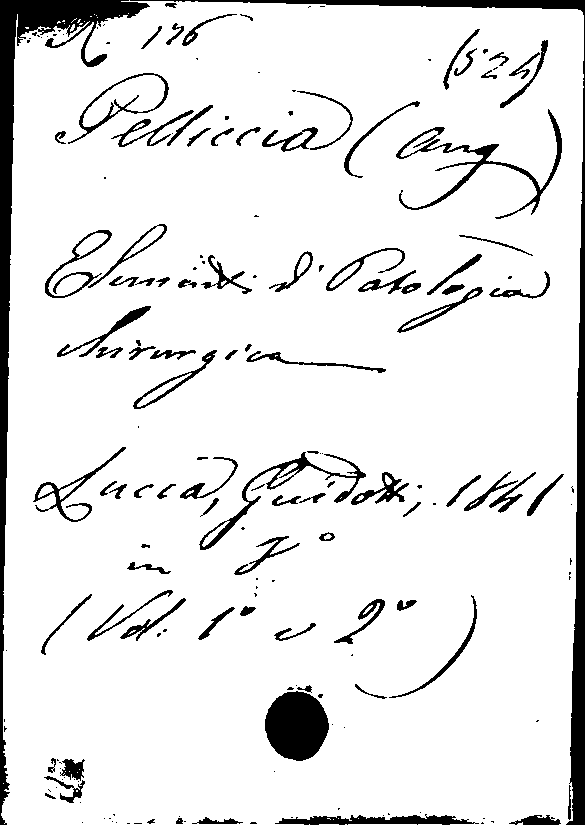 N. 176
(524)
Pelliccia (Ang)
Elementi di Patologia
chirurgica
Lucca, Guidotti, 1841
in 8°
(Vol. 1° e 2°)